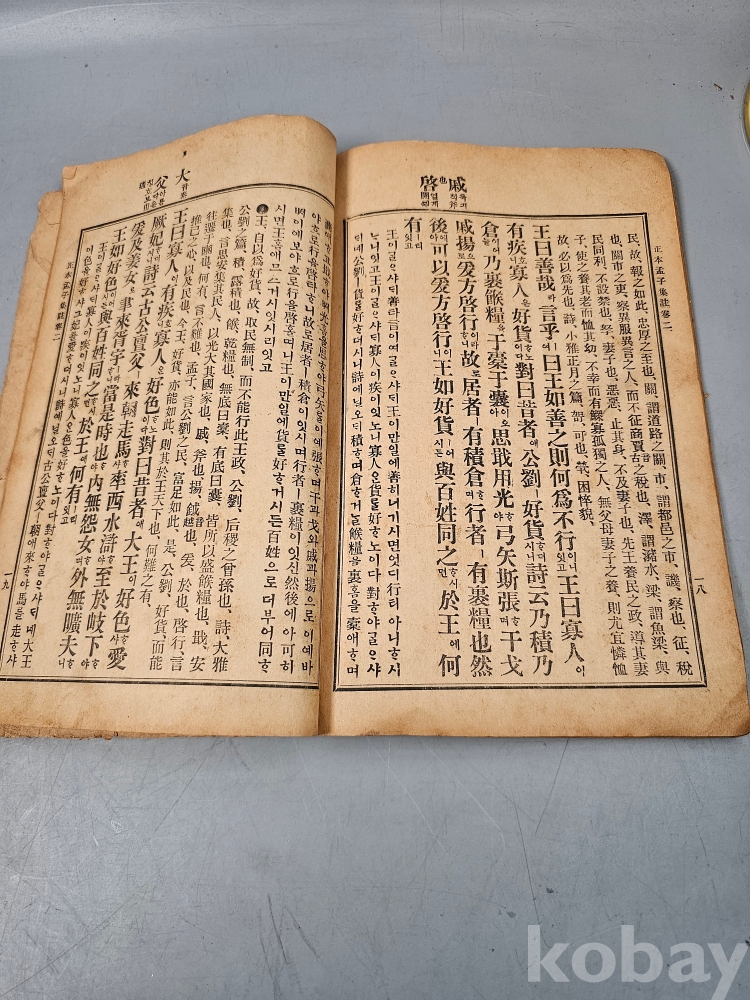 正本孟子集註卷二 一八
戚
啓
民、故、報之如此、忠厚之至也、關、謂道路之關、市、謂都邑之市、譏、察也、征、稅
也、關市之吏、察異服異言之人、而不征商賈之稅也、澤、謂瀦水、梁、謂魚梁、與
民同利、不設禁也、孥、妻子也、惡惡、止其身、不及妻子也、先王養民之政、導其妻
子、使之養其老而恤其幼、不幸而有鰥寡孤獨之人、無父母妻子之養、則尤宜憐恤
故、必以爲先也、詩、小雅正月之篇、哿、可也、煢、困悴貌、
王曰善哉라言乎여曰王如善之則何爲不行이니잇고王曰寡人이
有疾호니寡人은好貨ᄒᆞ노이다對曰昔者에公劉ㅣ好貨ᄒᆞ더시니詩云乃積乃
倉이어늘乃裹餱糧을于橐于囊이오思戢用光ᄒᆞ야弓矢斯張ᄒᆞ며干戈
戚揚으로爰方啓行이라ᄒᆞ니故로居者ㅣ有積倉ᄒᆞ며行者ㅣ有裹糧也然
後에아可以爰方啓行이니王如好貨ㅣ어시든與百姓同之ᄒᆞ시면於王에何
有ㅣ리잇고
王이ᄀᆞᆯᄋᆞ샤ᄃᆡ善타言이여ᄀᆞᆯᄋᆞ샤ᄃᆡ王이만일에善히너기시면엇디行티아니ᄒᆞ시
ᄂᆞ니잇고王이ᄀᆞᆯᄋᆞ샤ᄃᆡ寡人이疾이잇노니寡人은貨를好ᄒᆞ노이다對ᄒᆞ야ᄀᆞᆯᄋᆞ샤
ᄃᆡ네公劉ㅣ貨를好ᄒᆞ더시니詩에닐오ᄃᆡ積ᄒᆞ며倉ᄒᆞ거늘餱糧을裹홈을橐애ᄒᆞ며
야ᄒᆞ로行을啓타ᄒᆞ니故로居ᄒᆞᆫ者ㅣ積倉이이시며行者ㅣ裹糧이잇신然後에아可히
ᄡᅥ이예보야ᄒᆞ로行을啓홀ᄯᅵ니王이만일에貨를好ᄒᆞ거시든百姓으로더부러同ᄒᆞ
시면王홈애므스거시잇시리잇고
王、自以爲好貨、故、取民無制、而不能行此王政、公劉、后稷之曾孫也、詩、大雅
公劉之篇、積、露積也、餱、乾糧也、無底曰橐、有底曰囊、皆所以盛餱糧也、戢、安
集也、言思安集其民人、以光大其國家也、戚、斧也、揚、鉞也、爰、於也、啓行、言
往遷于豳也、何有、言不難也、孟子、言公劉之民、富足如此、是、公劉、好貨、而能
推己之心、以及民也、今王、好貨、亦能如此、則其於王天下也、何難之有、
王曰寡人이有疾호니寡人은好色ᄒᆞ노이다對曰昔者애大王이好色ᄒᆞ샤愛
厥妃ᄒᆞ더시니詩云古公亶父ㅣ來朝走馬ᄒᆞ샤率西水滸ᄒᆞ샤至於岐下ᄒᆞ야
爰及姜女로聿來胥宇ㅣ라ᄒᆞ니當是時也ᄒᆞ야內無怨女ᄒᆞ며外無曠夫ᄒᆞ니
王如好色이어시든與百姓同之ᄒᆞ시면於王에何有ㅣ리잇고
王이ᄀᆞᆯᄋᆞ샤ᄃᆡ寡人이疾이잇노니寡人은色을好ᄒᆞ노이다對ᄒᆞ야ᄀᆞᆯᄋᆞ샤ᄃᆡ네大王
이色을好ᄒᆞ샤그妃를愛ᄒᆞ더시니詩에닐오ᄃᆡ古公亶父ㅣ朝애來ᄒᆞᆯᄉᆡ馬를走ᄒᆞ샤
大
父
正本孟子集註卷二 一九
kobay